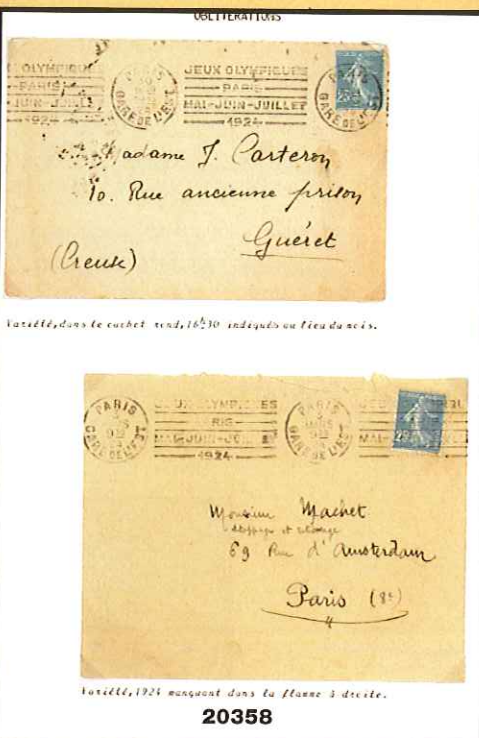 OBLITERATIONS
JEUX OLYMPIQUES
PARIS
MAI-JUIN-JUILLET
1924
PARIS
GARE DE L'EST
OLYMPIQUES
PARIS
JUIN-JUILLET
1924
Madame J. Carteron
10. Rue ancienne prison
Guéret
(Creuse)
Variété, dans le cachet rond, 16h30 indiqués au lieu du mois.
PARIS
GARE DE L'EST
RIS
MAI-JUIN-JU
1924
PARIS
GARE DE L'EST
Monsieur Machet
69 Rue d'Amsterdam
Paris (8e)
Variété, 1924 manquant dans la flamme à droite.
20358